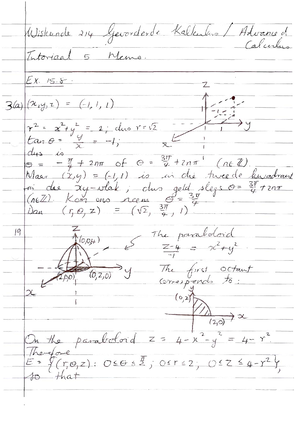 Wiskunde 214 Gevorderde Kalkulus / Advanced
Calculus
Tutoriaal 5 Memo.
Ex 15.8.
3(a) (x,y,z) = (-1,1,1)
r² = x²+y² = 2; dus r=√2
tan θ = y/x = -1;
dus is
θ = -π/4 + 2nπ of θ = 3π/4 + 2nπ (n∈ℤ)
Maar (x,y) = (-1,1) is in die tweede kwadrant
in die xy-vlak, dus geld slegs θ = 3π/4 + 2nπ
(n∈ℤ). Kom ons neem θ = 3π/4
Dan (r,θ,z) = (√2, 3π/4, 1)
z
y
x
19
z
(0,0,4)
(2,0,0)
(0,2,0)
y
x
The paraboloid
z-4/-1 = x²+y²
The first octant
corresponds to:
y
(0,2)
(2,0)
x
On the paraboloid z = 4-x²-y² = 4-r²
Therefore
E = {(r,θ,z): 0≤θ≤π/2, 0≤r≤2, 0≤z≤4-r²},
so that